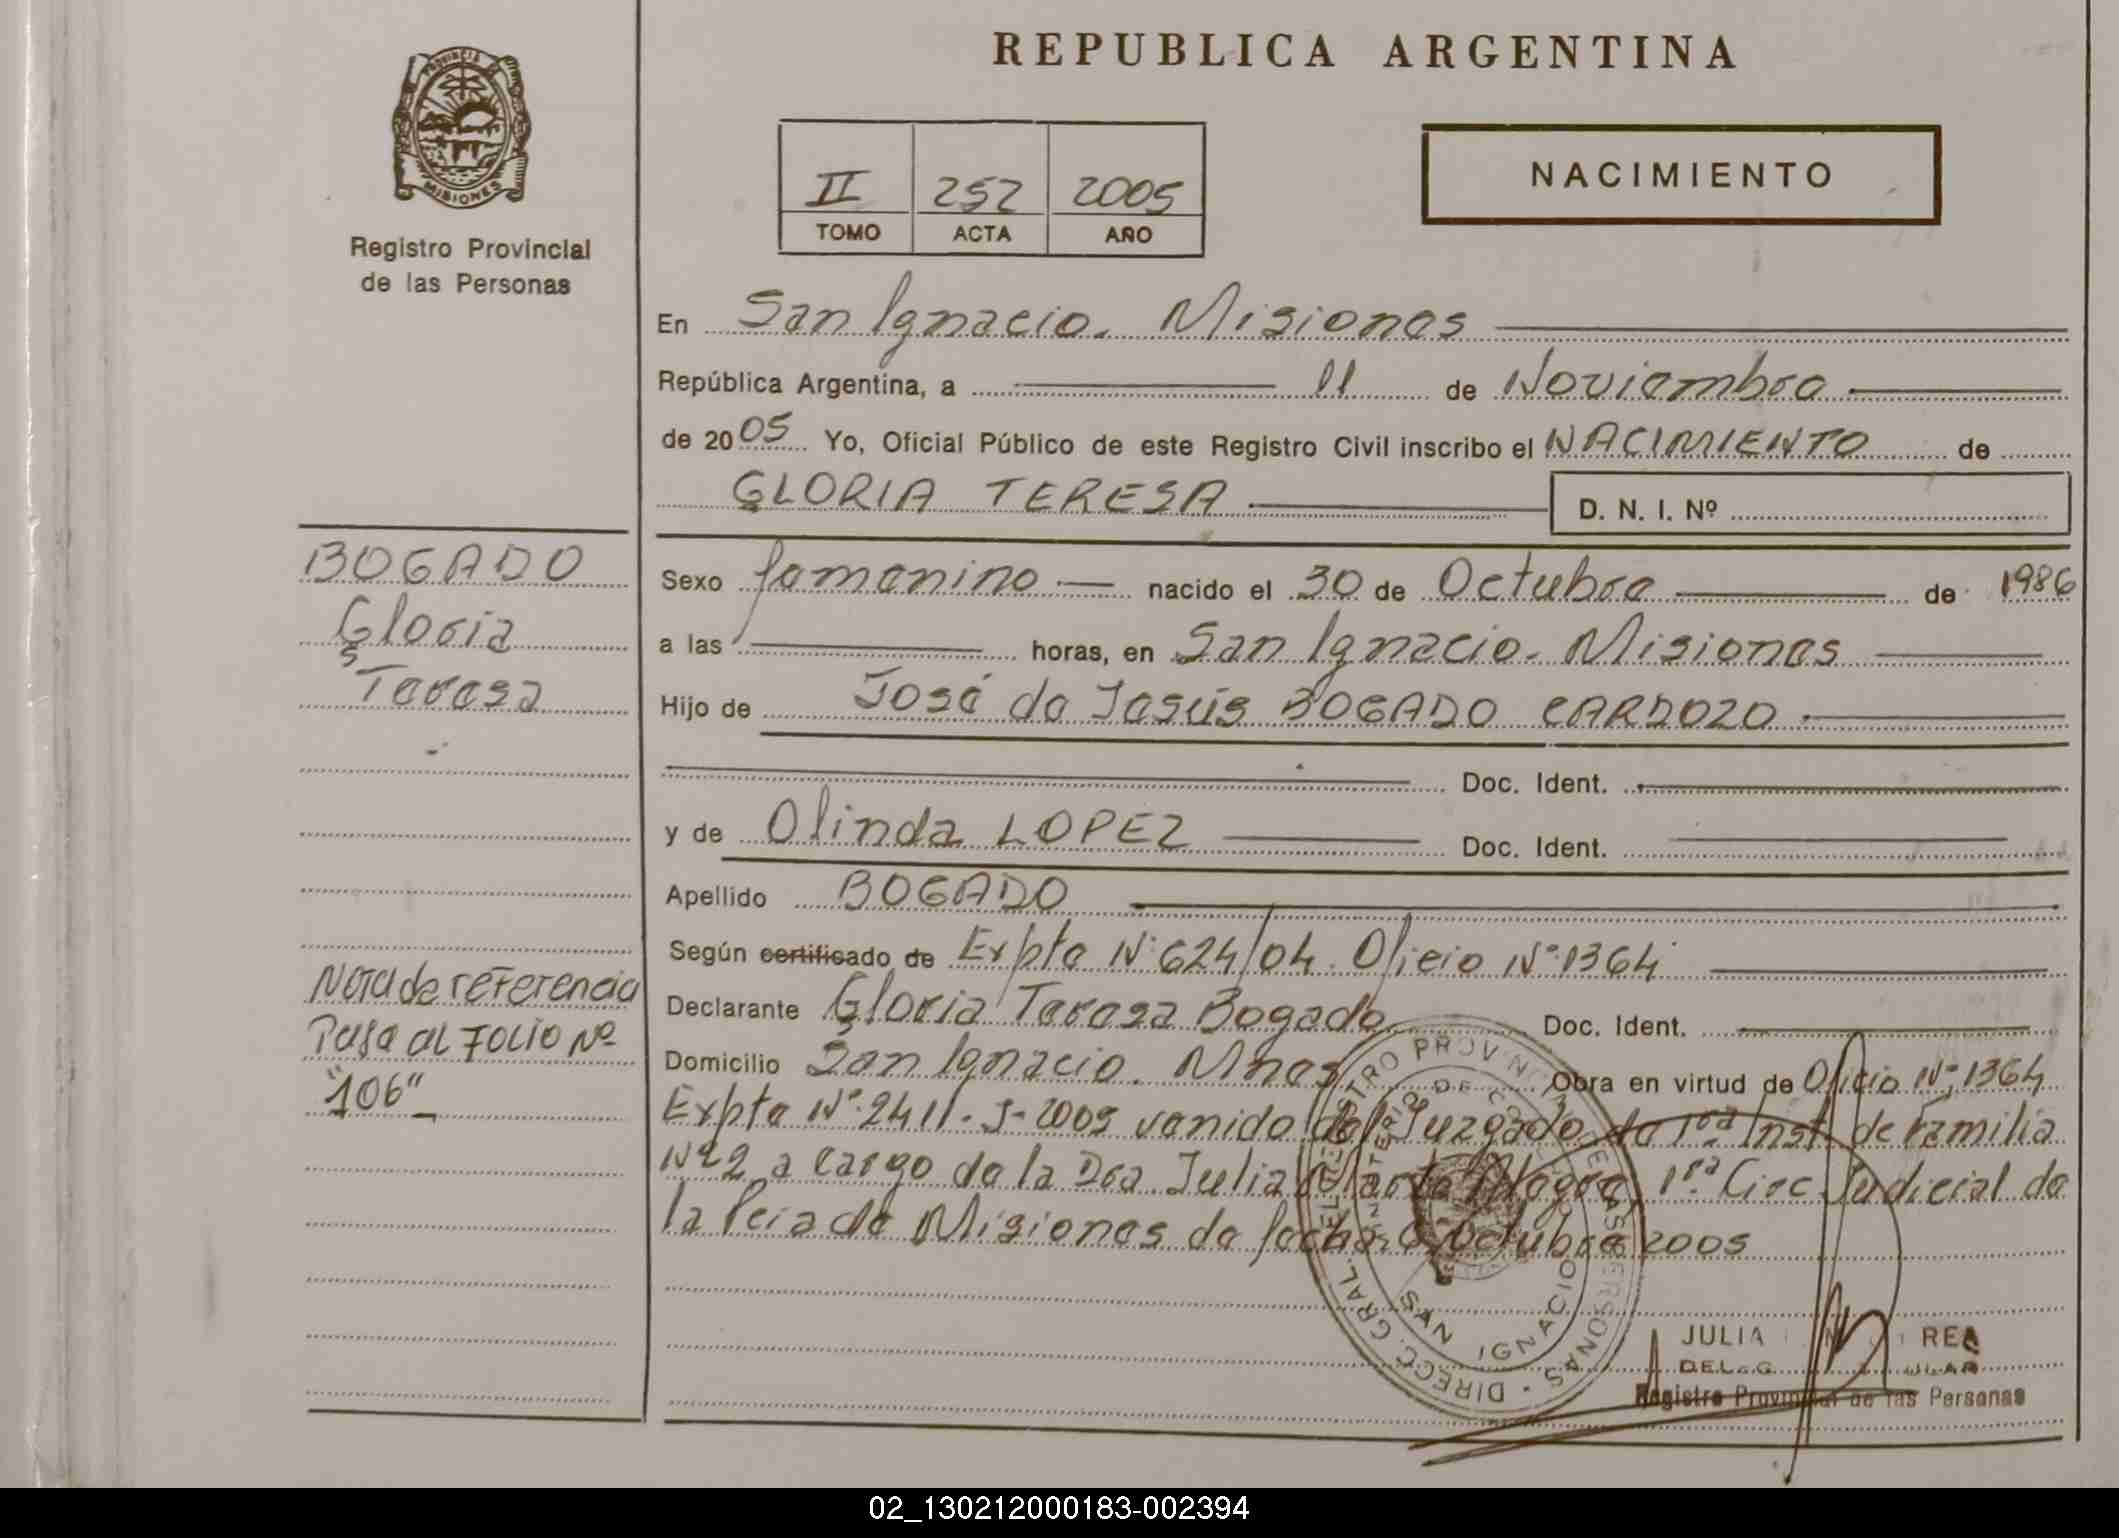 PROVINCIA DE
MISIONES
Registro Provincial
de las Personas
REPUBLICA ARGENTINA
II 252 2005
TOMO ACTA AÑO
NACIMIENTO
En San Ignacio. Misiones
República Argentina, a 11 de Noviembre
de 2005 Yo, Oficial Público de este Registro Civil inscribo el NACIMIENTO de
GLORIA TERESA D. N. I. Nº
Sexo femenino nacido el 30 de Octubre de 1986
a las horas, en San Ignacio. Misiones
Hijo de José de Jesús BOGADO CARDOZO
Doc. Ident.
y de Olinda LOPEZ Doc. Ident.
Apellido BOGADO
Según certificado de Expte Nº 624/04. Oficio Nº 1364
Declarante Gloria Teresa Bogado Doc. Ident.
Domicilio San Ignacio. Mnes Obra en virtud de Oficio Nº 1364
Expte Nº 2411-J-2005 venido del Juzgado de 1ra Inst. de Familia
Nº 2 a cargo de la Dra Julia Marta 1ra Circ Judicial de
la Pcia de Misiones de fecha Octubre 2005
BOGADO
Gloria
Teresa
Nota de referencia
Pasa al FOLIO Nº
"106"
DIRECC. GRAL. DEL REGISTRO PROVINCIAL DE LAS PERSONAS
SAN IGNACIO
JULIA
Registro Provincial de las Personas
02_130212000183-002394